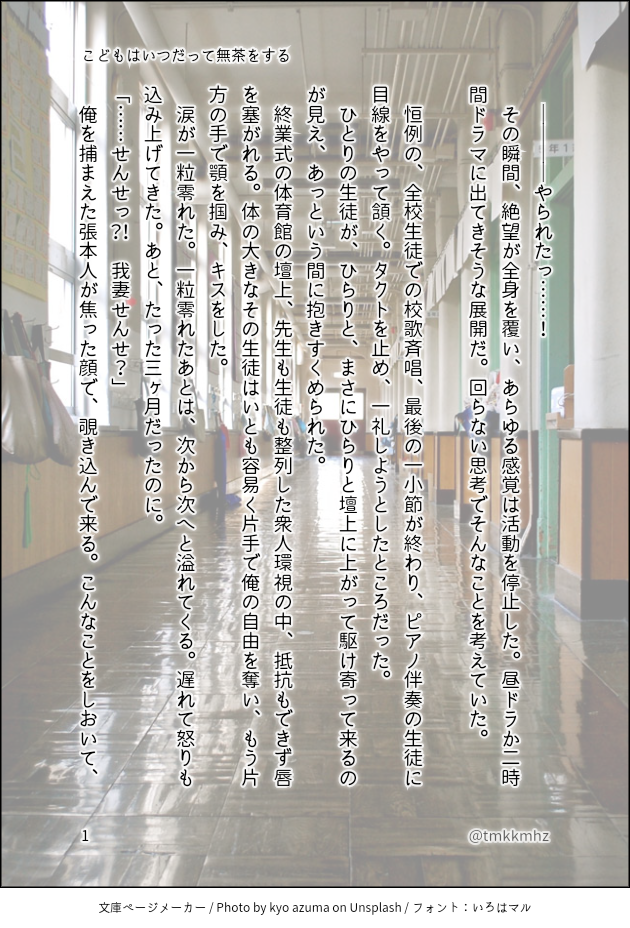 こどもはいつだって無茶をする
―――――やられたっ……！
その瞬間、絶望が全身を覆い、あらゆる感覚は活動を停止した。昼ドラか二時
間ドラマに出てきそうな展開だ。回らない思考でそんなことを考えていた。
恒例の、全校生徒での校歌斉唱、最後の一小節が終わり、ピアノ伴奏の生徒に
目線をやって頷く。タクトを止め、一礼しようとしたところだった。
ひとりの生徒が、ひらりと、まさにひらりと壇上に上がって駆け寄って来るの
が見え、あっという間に抱きすくめられた。
終業式の体育館の壇上、先生も生徒も整列した衆人環視の中、抵抗もできず唇
を塞がれる。体の大きなその生徒はいとも容易く片手で俺の自由を奪い、もう片
方の手で顎を掴み、キスをした。
涙が一粒零れた。一粒零れたあとは、次から次へと溢れてくる。遅れて怒りも
込み上げてきた。あと、たった三ヶ月だったのに。
「……せんせっ?!　我妻せんせ？」
俺を捕まえた張本人が焦った顔で、覗き込んで来る。こんなことをしおいて、
1
@tmkkmhz
文庫ページメーカー / Photo by kyo azuma on Unsplash / フォント：いろはマル